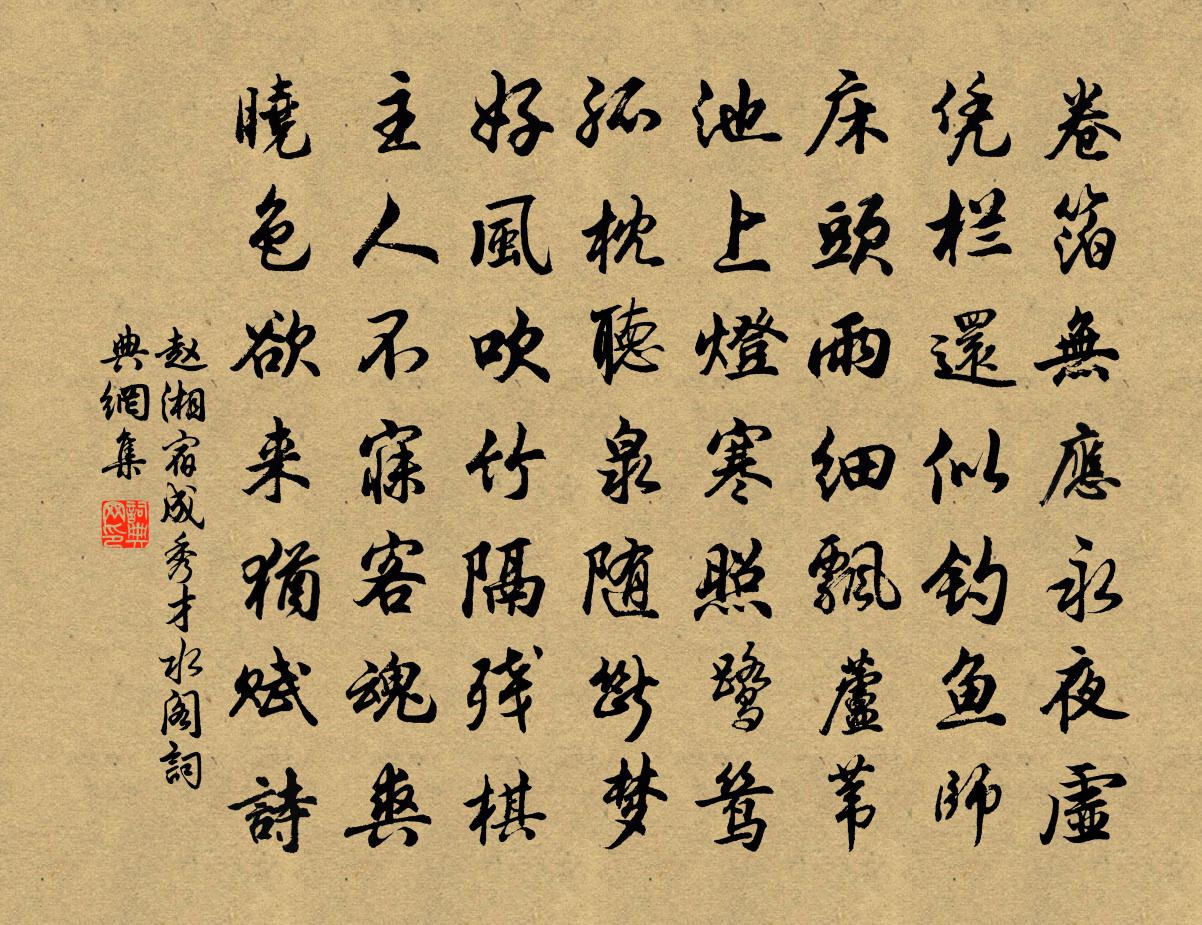 卷箔無應永夜虛
凭栏還似钓鱼師
床頭雨細飄蘆苇
池上燈寒照鹭鸶
孤枕聽泉随斷梦
好風吹竹隔残棋
主人不寐客魂爽
曉色欲来猶赋詩
赵湘宿成秀才水阁詞
典網集
詞典
网印